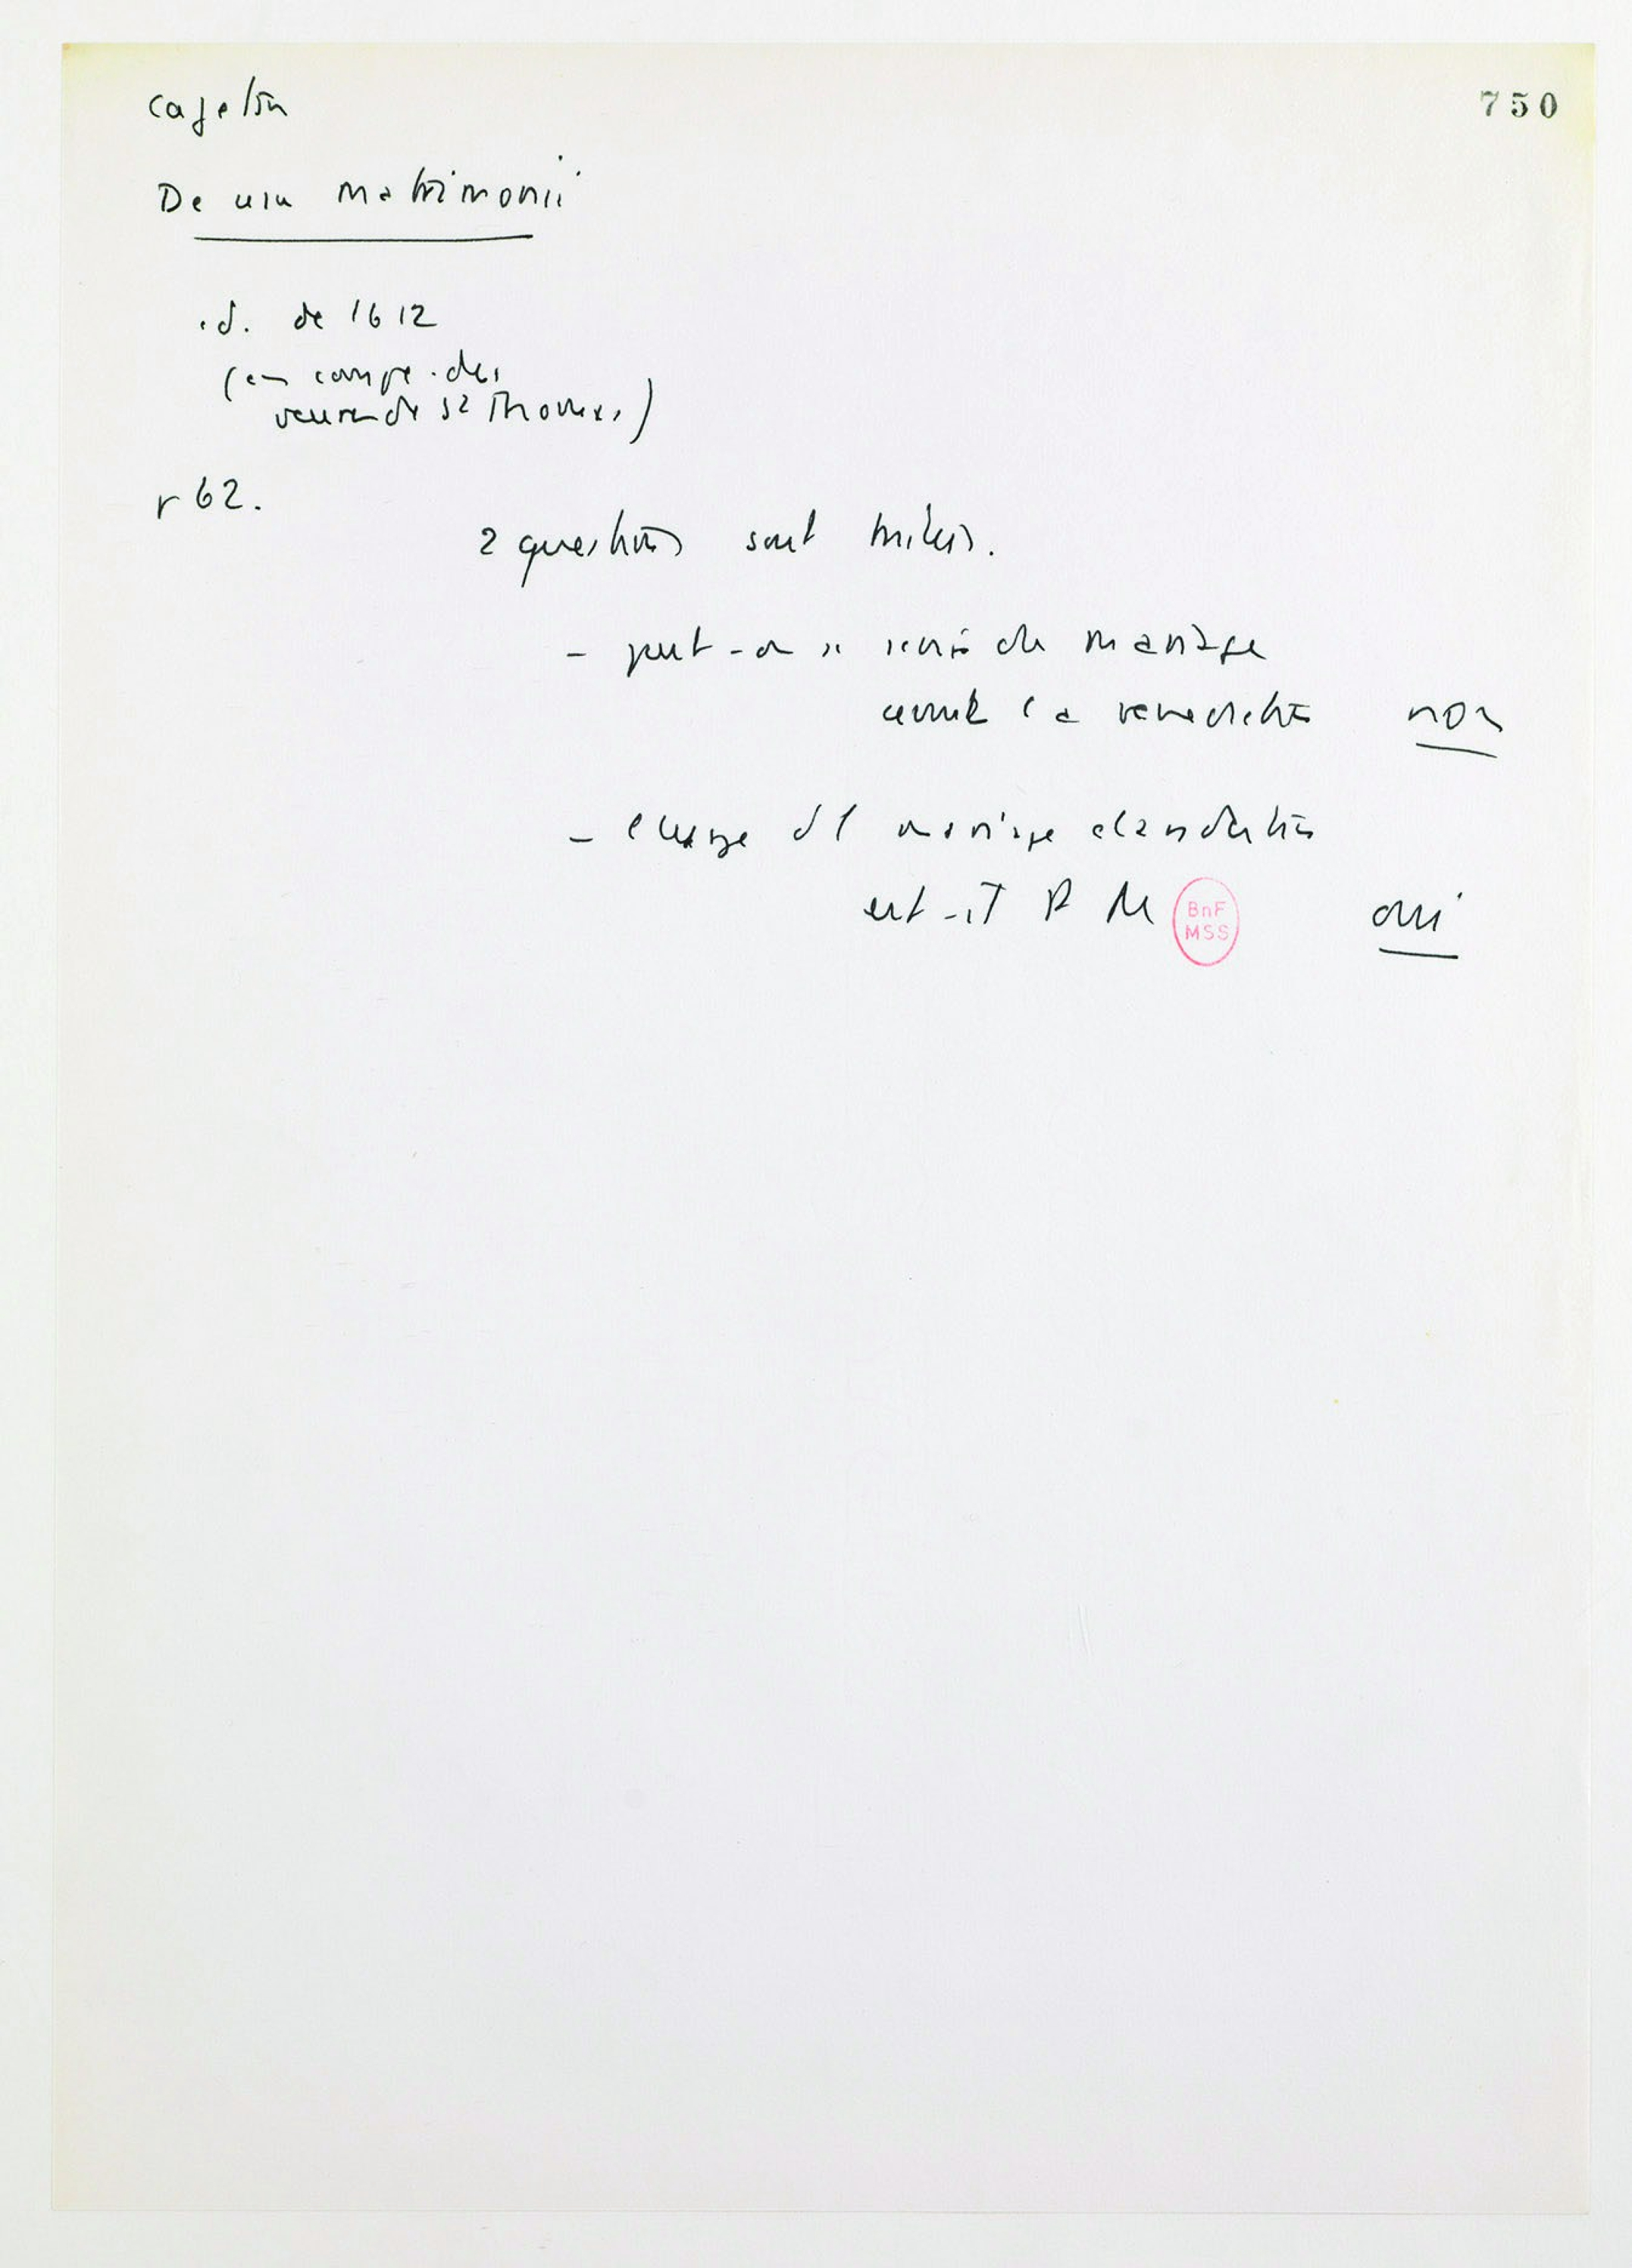 Cajetan
750
De usu matrimonii
éd. de 1612
(en compé. des
de St Thomas)
p 62.
2 questions sont traitées.
- peut-on se servir du mariage
avant la bénédiction non
- l'usage d'1 mariage clandestin
est-il P M oui
BnF
MSS